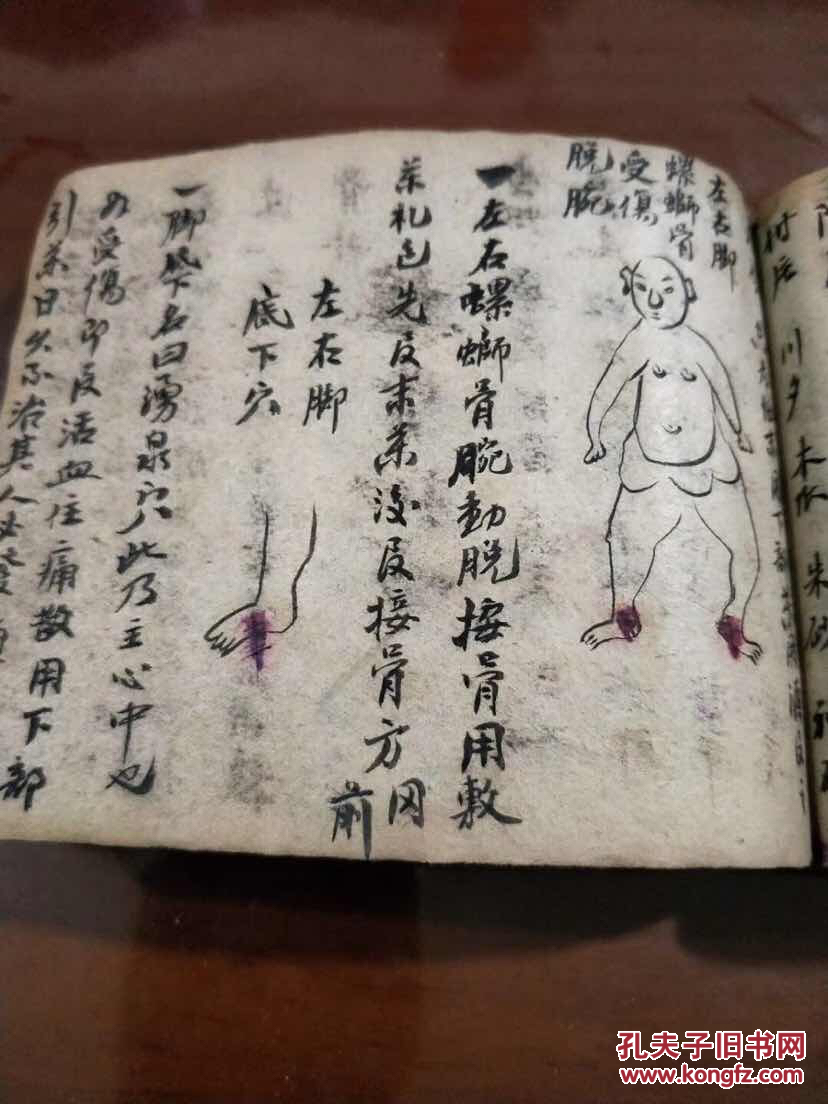 左右脚
螺螄骨
受傷
脱腕
一左右螺螄骨腕動脱接骨用敷
薬札包先反末薬後反接骨方同
前
左右脚
底下穴
一脚底下名曰湧泉穴此乃主心中也
如受傷即反活血住痛散用下部
引薬日久不治其人必
付店
川夕
木瓜
朱砂
孔夫子旧书网
www.kongfz.com